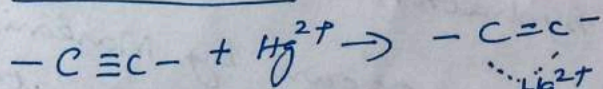 - C ≡ C - + Hg²⁺ → - C = C -
Hg²⁺